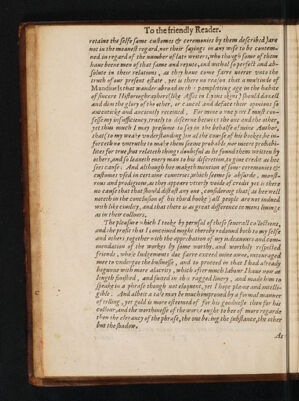 To the friendly Reader.
retaine the selfe same customes & ceremonies by them described) are
not in the meanest regard, nor their sayings in any wise to be contem-
ned in regard of the number of late writers, who though some of them
haue beene men of that same and repute, and withal so perfect and ab-
solute in their relations, as they haue come farre neerer vnto the
truth of our present estate. yet is there no reason that a multitude of
that wander abroad in the pampletting age in the habite
of sincere Historiographers (like Asses in Lyons skins) should cancell
and dim the glory of the other, or cancel and deface their opinions so
anciently receiued. For mine owne part I must con-
fesse my insufficiency, truely to discerne betwixt the one and the other,
yet thus much I may presume to say in the behalfe of mine Author,
that (to my weake vnderstanding) in all the course of his bookes he in-
forceth no vntruths to make them seeme probable, nor inserts proba-
ties for true, but relateth things doubtful as he found them written by
others, and so leaueth euery man to his discretion, to giue credit as hee
sees cause. And although hee maketh mention of some ceremonies &
customes vsed in certaine countries, which seeme so absurde, monst-
rous and prodigious, as they appeare vtterly voide of credit yet is there
no cause that that should distast any one, considering that, as hee well
noteth in the conclusion of his third booke, all people are not indued
with like ciuility, and that there is as great difference in mens liuings
as in their collours.
The pleasure which I tooke by perusal of these seuerall collections,
and the profit that I conceiued might thereby redound both to my selfe
and others together with the approbation of my indeauors and com-
mendation of the worke by some worthy, and worthily respected
friends, whose Iudgements doe farre exceed mine owne, encouraged
mee to vndergoe the businesse, and to proceed in that I had already
begunne with more alacrity, which after much labour I haue now at
length finished, and suited in this ragged liuery, and made him to
speake in a phrase though not eloquent, yet I hope plaine and intelli-
gible. And albeit a tale may be much improued by a formal manner
of telling, yet gold is more esteemed of for his goodnesse then for his
collour, and the worthinesse of the worke ought to be of more regarde
then the elegancy of the phrase, the one being the substance, the other
but the shadow.
As